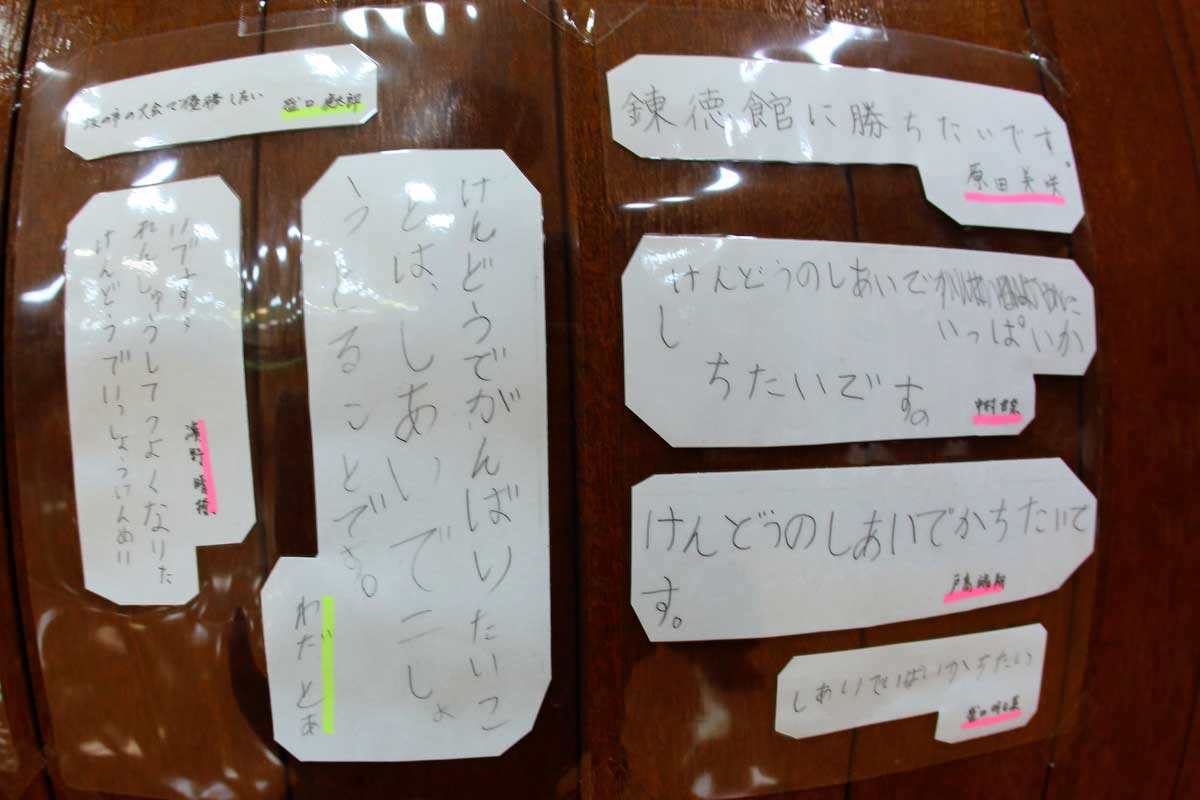 坂の市の大会で優勝したい
けんどうでがんばりたいこ
とは、しあいで二しょ
うとることです。
わだ とあ
けんどうでいっしょうけんめい
れんしゅうしてつよくなりた
いです。
濱野 晴
錬徳館に勝ちたいです。
原田 美咲
けんどうのしあいで
いっぱいか
し
ちたいです。
中村
けんどうのしあいでかちたいで
す。
戸高
しあいでいぱいかちたい